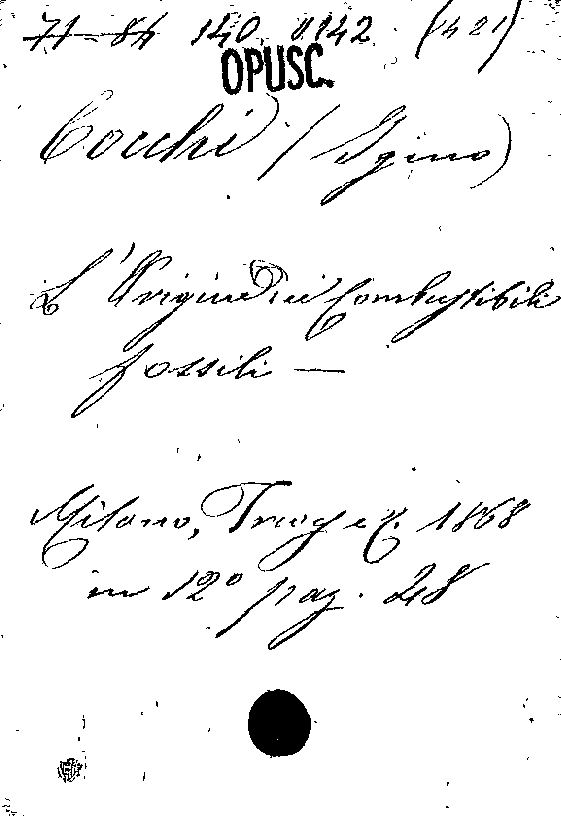 71-84 140 0.142 (421)
OPUSC.
Cocchi (Igino)
L'Origine dei Combustibili
fossili —
Milano, Treves e C. 1868
in 12° pag. 28